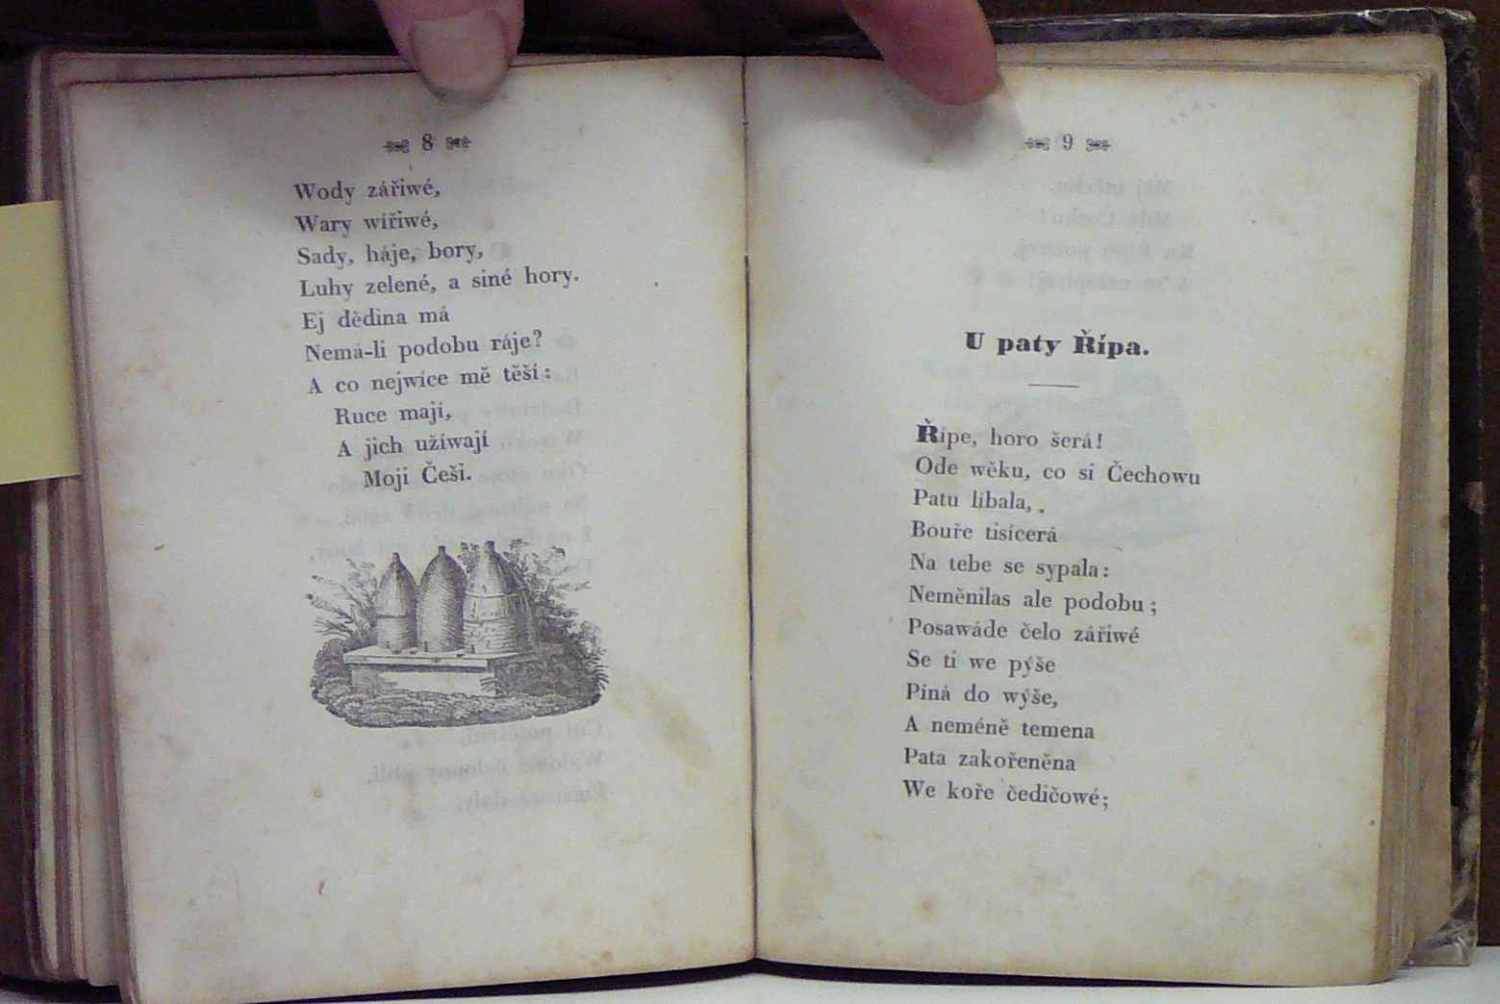 8
Wody zářiwé,
Wary wířiwé,
Sady, háje, bory,
Luhy zelené, a siné hory.
Ej dědina má
Nemá-li podobu ráje?
A co nejwíce mě těší:
Ruce mají,
A jich užíwají
Moji Češi.
9
U paty Řípa.
Řípe, horo šerá!
Ode wěku, co si Čechowu
Patu líbala,
Bouře tisícerá
Na tebe se sypala:
Neměnilas ale podobu;
Posawáde čelo zářiwé
Se ti we pýše
Píná do wýše,
A neméně temena
Pata zakořeněna
We koře čedičowé;